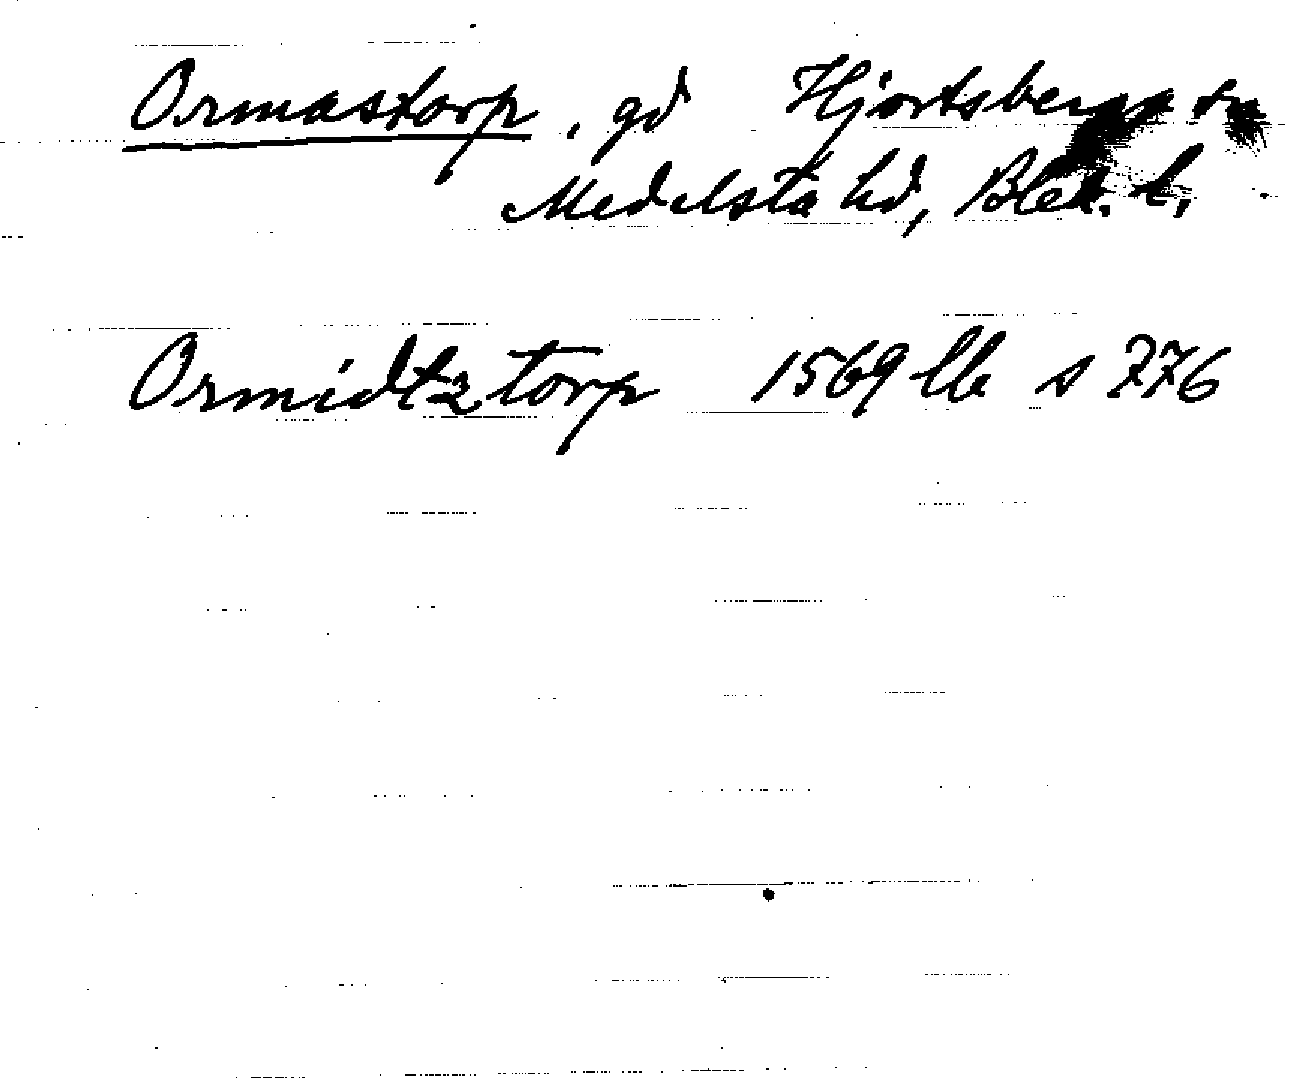 Ormastorp, gd Hjortsberga sn
Medelsta hd, Blek. l.
Ormidtztorp 1569 lb s 776